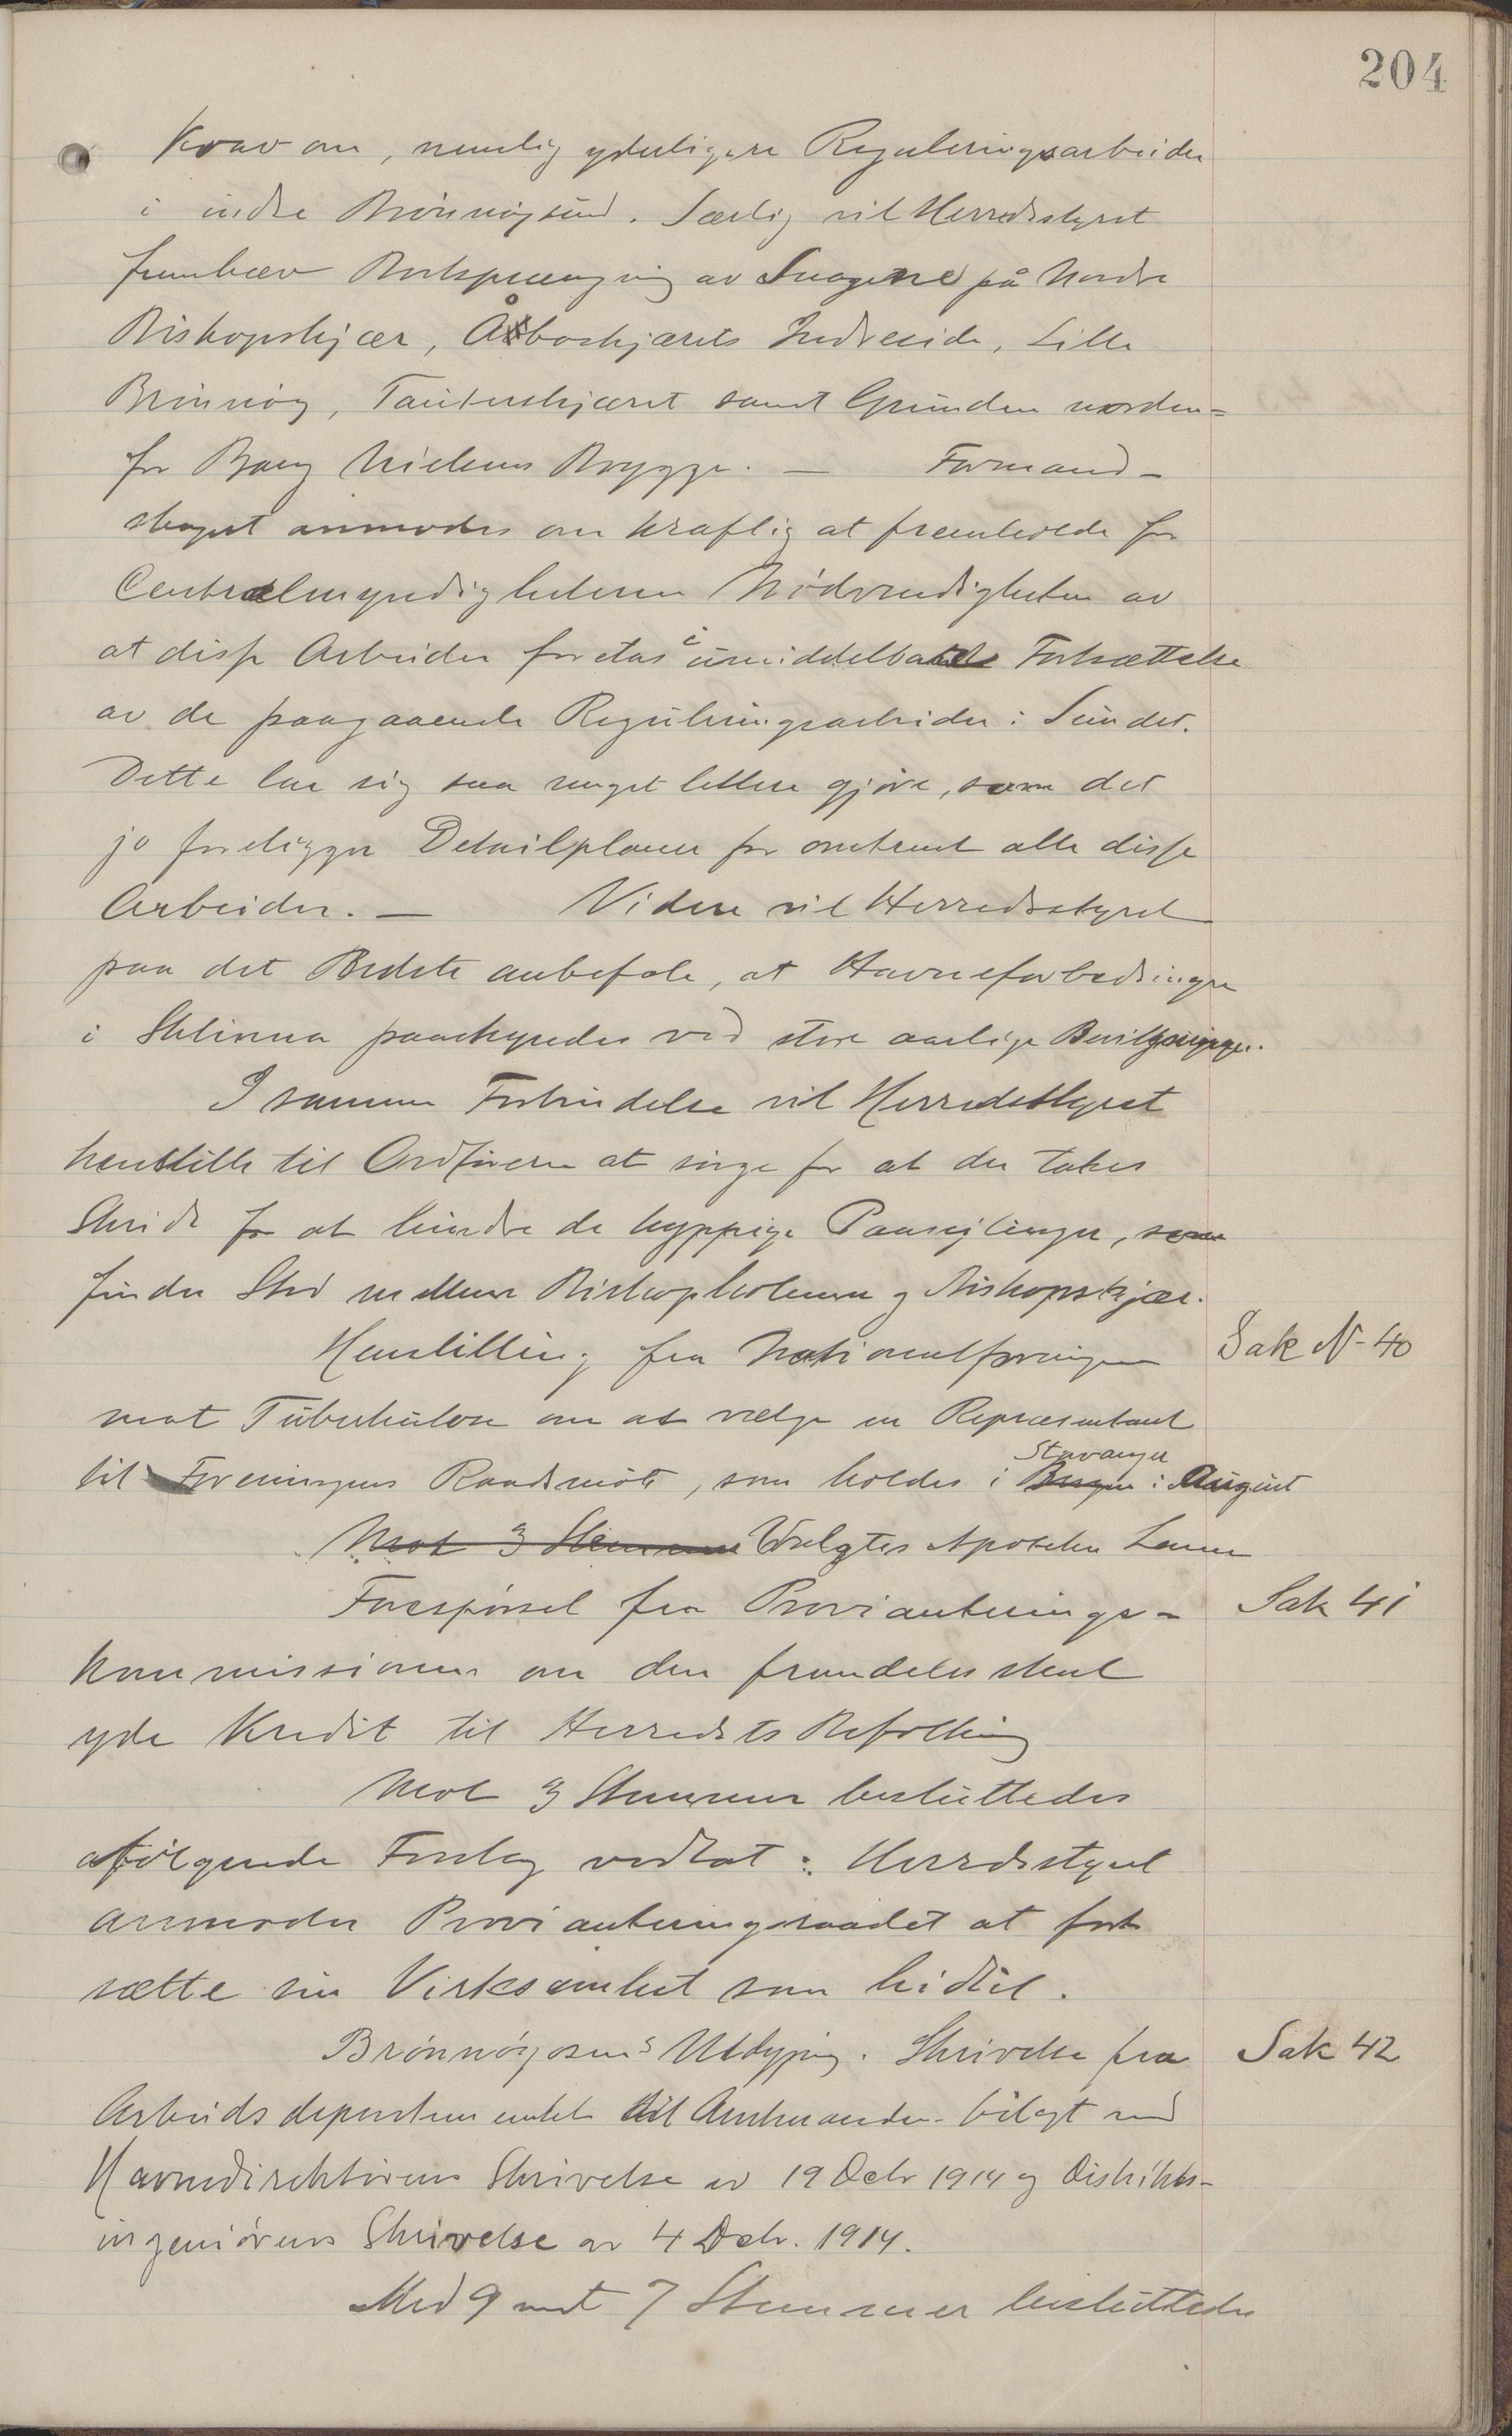 204
Krav om, nemlig yderligere Reguleringsarbeider
i indre Brönnöysund. Særlig vil Herredsstyret
fremhæve Bortsprængning av Snagene på Nordre
Biskopskjær, Åsboskjærets Indreside, Lille
Brönnöy, Tauterskjæret samt Grunden norden-
for Bang Nielsens Brygge. — Formand-
skapet anmodes om kraftig at fremholde for
Centralmyndigheterne Nödvendigheten av
at disse Arbeider foretas i umiddelbar Fortsættelse
av de paagaaende Reguleringsarbeider i Sundet.
Dette lar sig saa meget lettere gjöre, som det
jo foreligger Detailplaner for omtrent alle disse
Arbeider. — Videre vil Herredsstyret
paa det Bedste anbefale, at Havneforbedringen
i Sklinna paaskyndes ved store aarlige Bevilgninger.
I samme Forbindelse vil Herredsstyret
henstille til Ordföreren at sörge for at der tages
Skridt for at hindre de hyppige Paaseilinger, som
finder Sted mellem Biskopholmen og Biskopskjær.
Henstilling fra Nationalforeningen
Sak N- 40
mot Tuberkulose om at vælge en Repræsentant
til Foreningens Raadsmöte, som holdes i Bergen Stavanger i August
Mot 3 Stemmer Valgtes Apoteker
Forespörsel fra Provianterings-
Sak 41
kommissionen om den fremdeles skal
yde Kredit til Herredets Befolkning
Mot 3 Stemmer besluttedes
følgende Forslag vedtat: Herredsstyret
anmoder Provianteringsraadet at fort
sætte sin Virksomhet som hidtil.
Brönnöysunds Utdyping. Skrivelse fra
Sak 42
Arbeidsdepartementet til Amtmanden bilagt med
Havnedirektörens Skrivelse av 19 Decbr 1914 og Distrikts-
ingeniörens Skrivelse av 4 Decbr. 1914.
Med 9 mot 7 Stemmer besluttedes